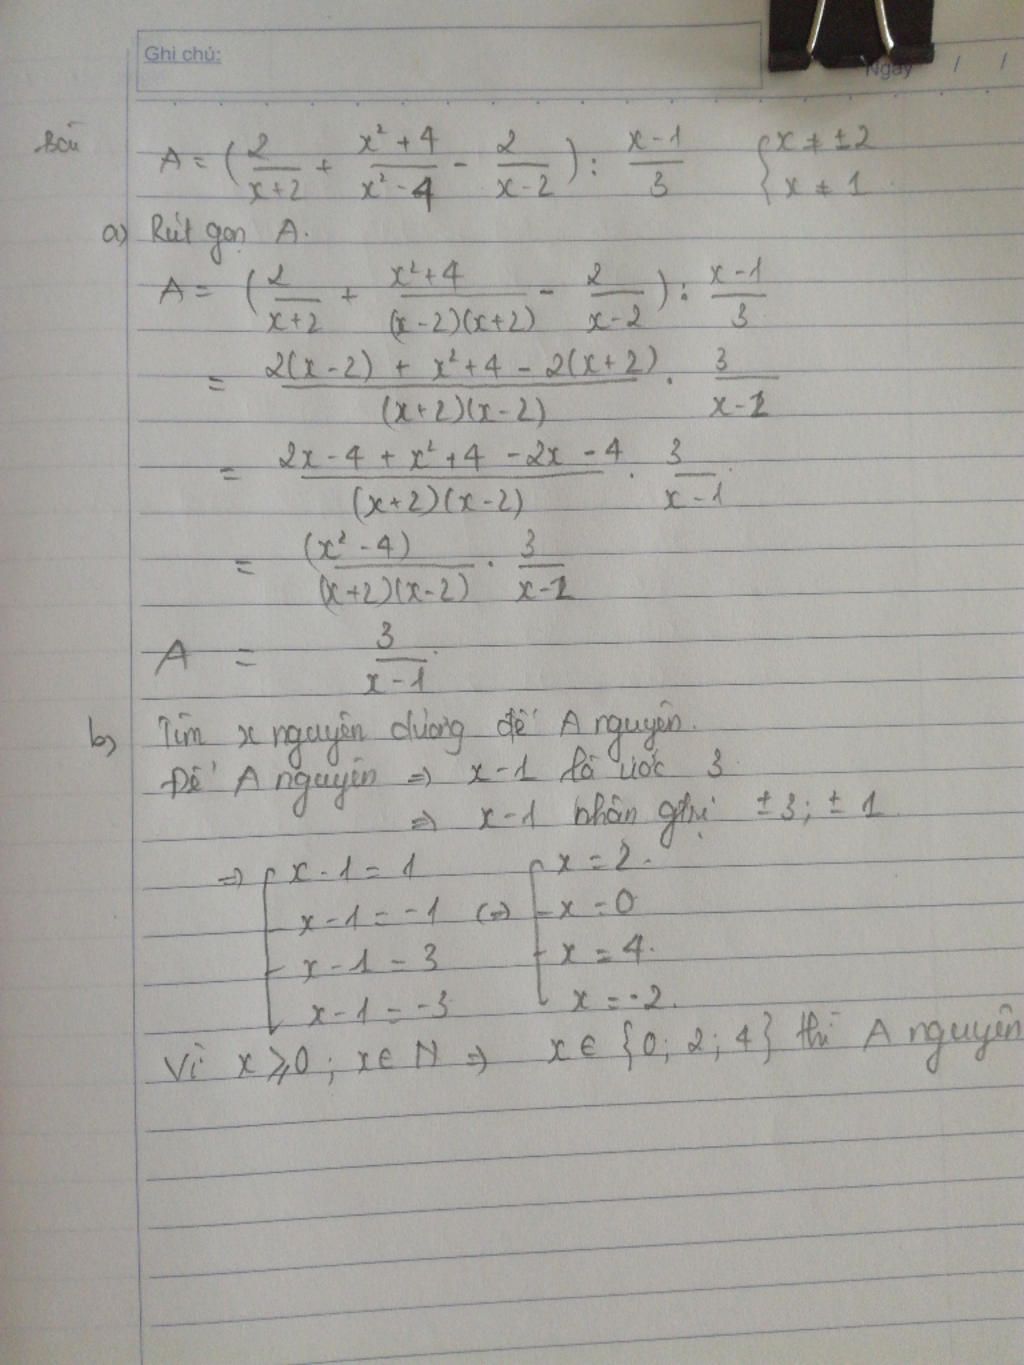 Ghi chú:
Ngày / /
Bài
A = (2/(x+2) + (x²+4)/(x²-4) - 2/(x-2)) : (x-1)/3 { x ≠ ±2
x ≠ 1
a) Rút gọn A.
A = (2/(x+2) + (x²+4)/((x-2)(x+2)) - 2/(x-2)) : (x-1)/3
= (2(x-2) + x²+4 - 2(x+2))/((x+2)(x-2)) . 3/(x-1)
= (2x-4 + x²+4 -2x -4)/((x+2)(x-2)) . 3/(x-1)
= (x²-4)/((x+2)(x-2)) . 3/(x-1)
A = 3/(x-1)
b) Tìm x nguyên dương để A nguyên.
Để A nguyên => x-1 là ước 3
=> x-1 nhận gtrị ±3; ±1
=> [ x-1=1 [ x=2.
x-1=-1 (=) x=0
x-1=3 x=4.
x-1=-3 x=-2.
Vì x ⩾ 0; x∈N => x∈{0; 2; 4} thì A nguyên